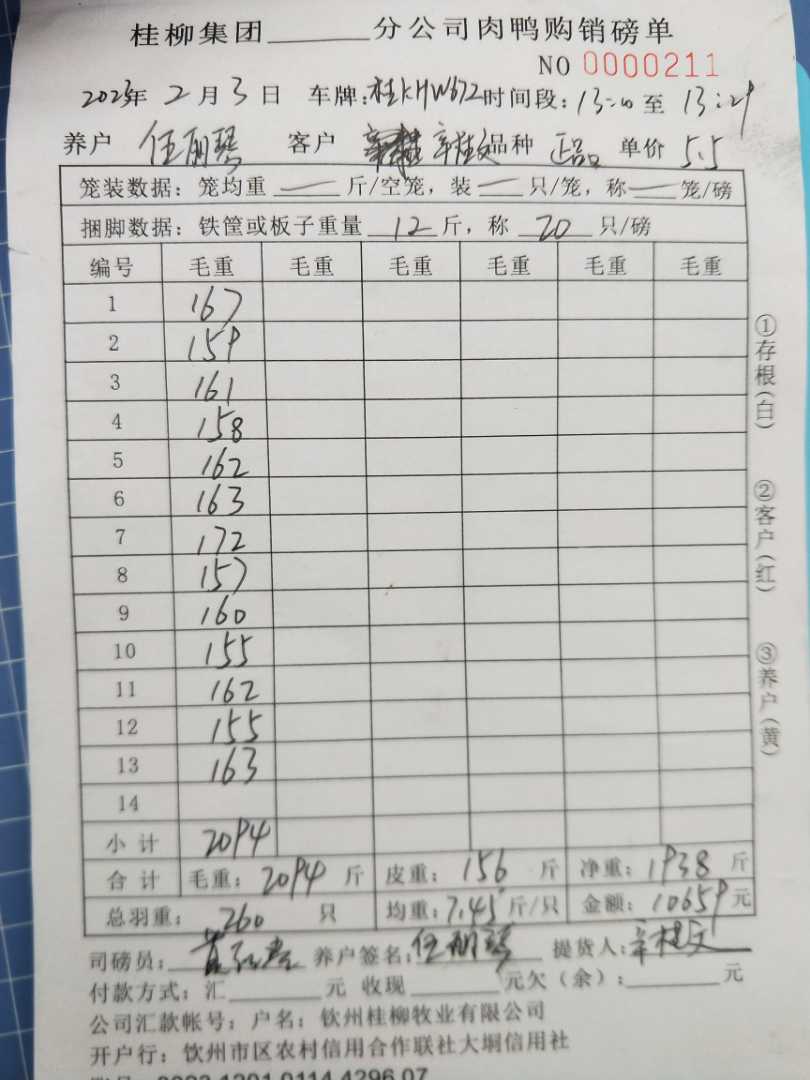 桂柳集团______分公司肉鸭购销磅单
NO 0000211
2025年 2月 3日 车牌:桂KHW672 时间段:13:10 至 13:29
养户 任丽琴 客户 辛桂文 品种 正品 单价 5.5
笼装数据: 笼均重 — 斤/空笼, 装 — 只/笼, 称 — 笼/磅
捆脚数据: 铁筐或板子重量 12 斤, 称 20 只/磅
编号 毛重 毛重 毛重 毛重 毛重 毛重
1 167
2 159
3 161
4 158
5 162
6 163
7 172
8 157
9 160
10 155
11 162
12 155
13 163
14
小计 2094
合计 毛重: 2094 斤 皮重: 156 斤 净重: 1938 斤
总羽重: 260 只 均重: 7.45 斤/只 金额: 10659 元
司磅员: 养户签名: 任丽琴 提货人: 辛桂文
付款方式: 汇______元 收现______元欠(余):______元
公司汇款帐号: 户名: 钦州桂柳牧业有限公司
开户行: 钦州市区农村信用合作联社大垌信用社
①存根(白)
②客户(红)
③养户(黄)